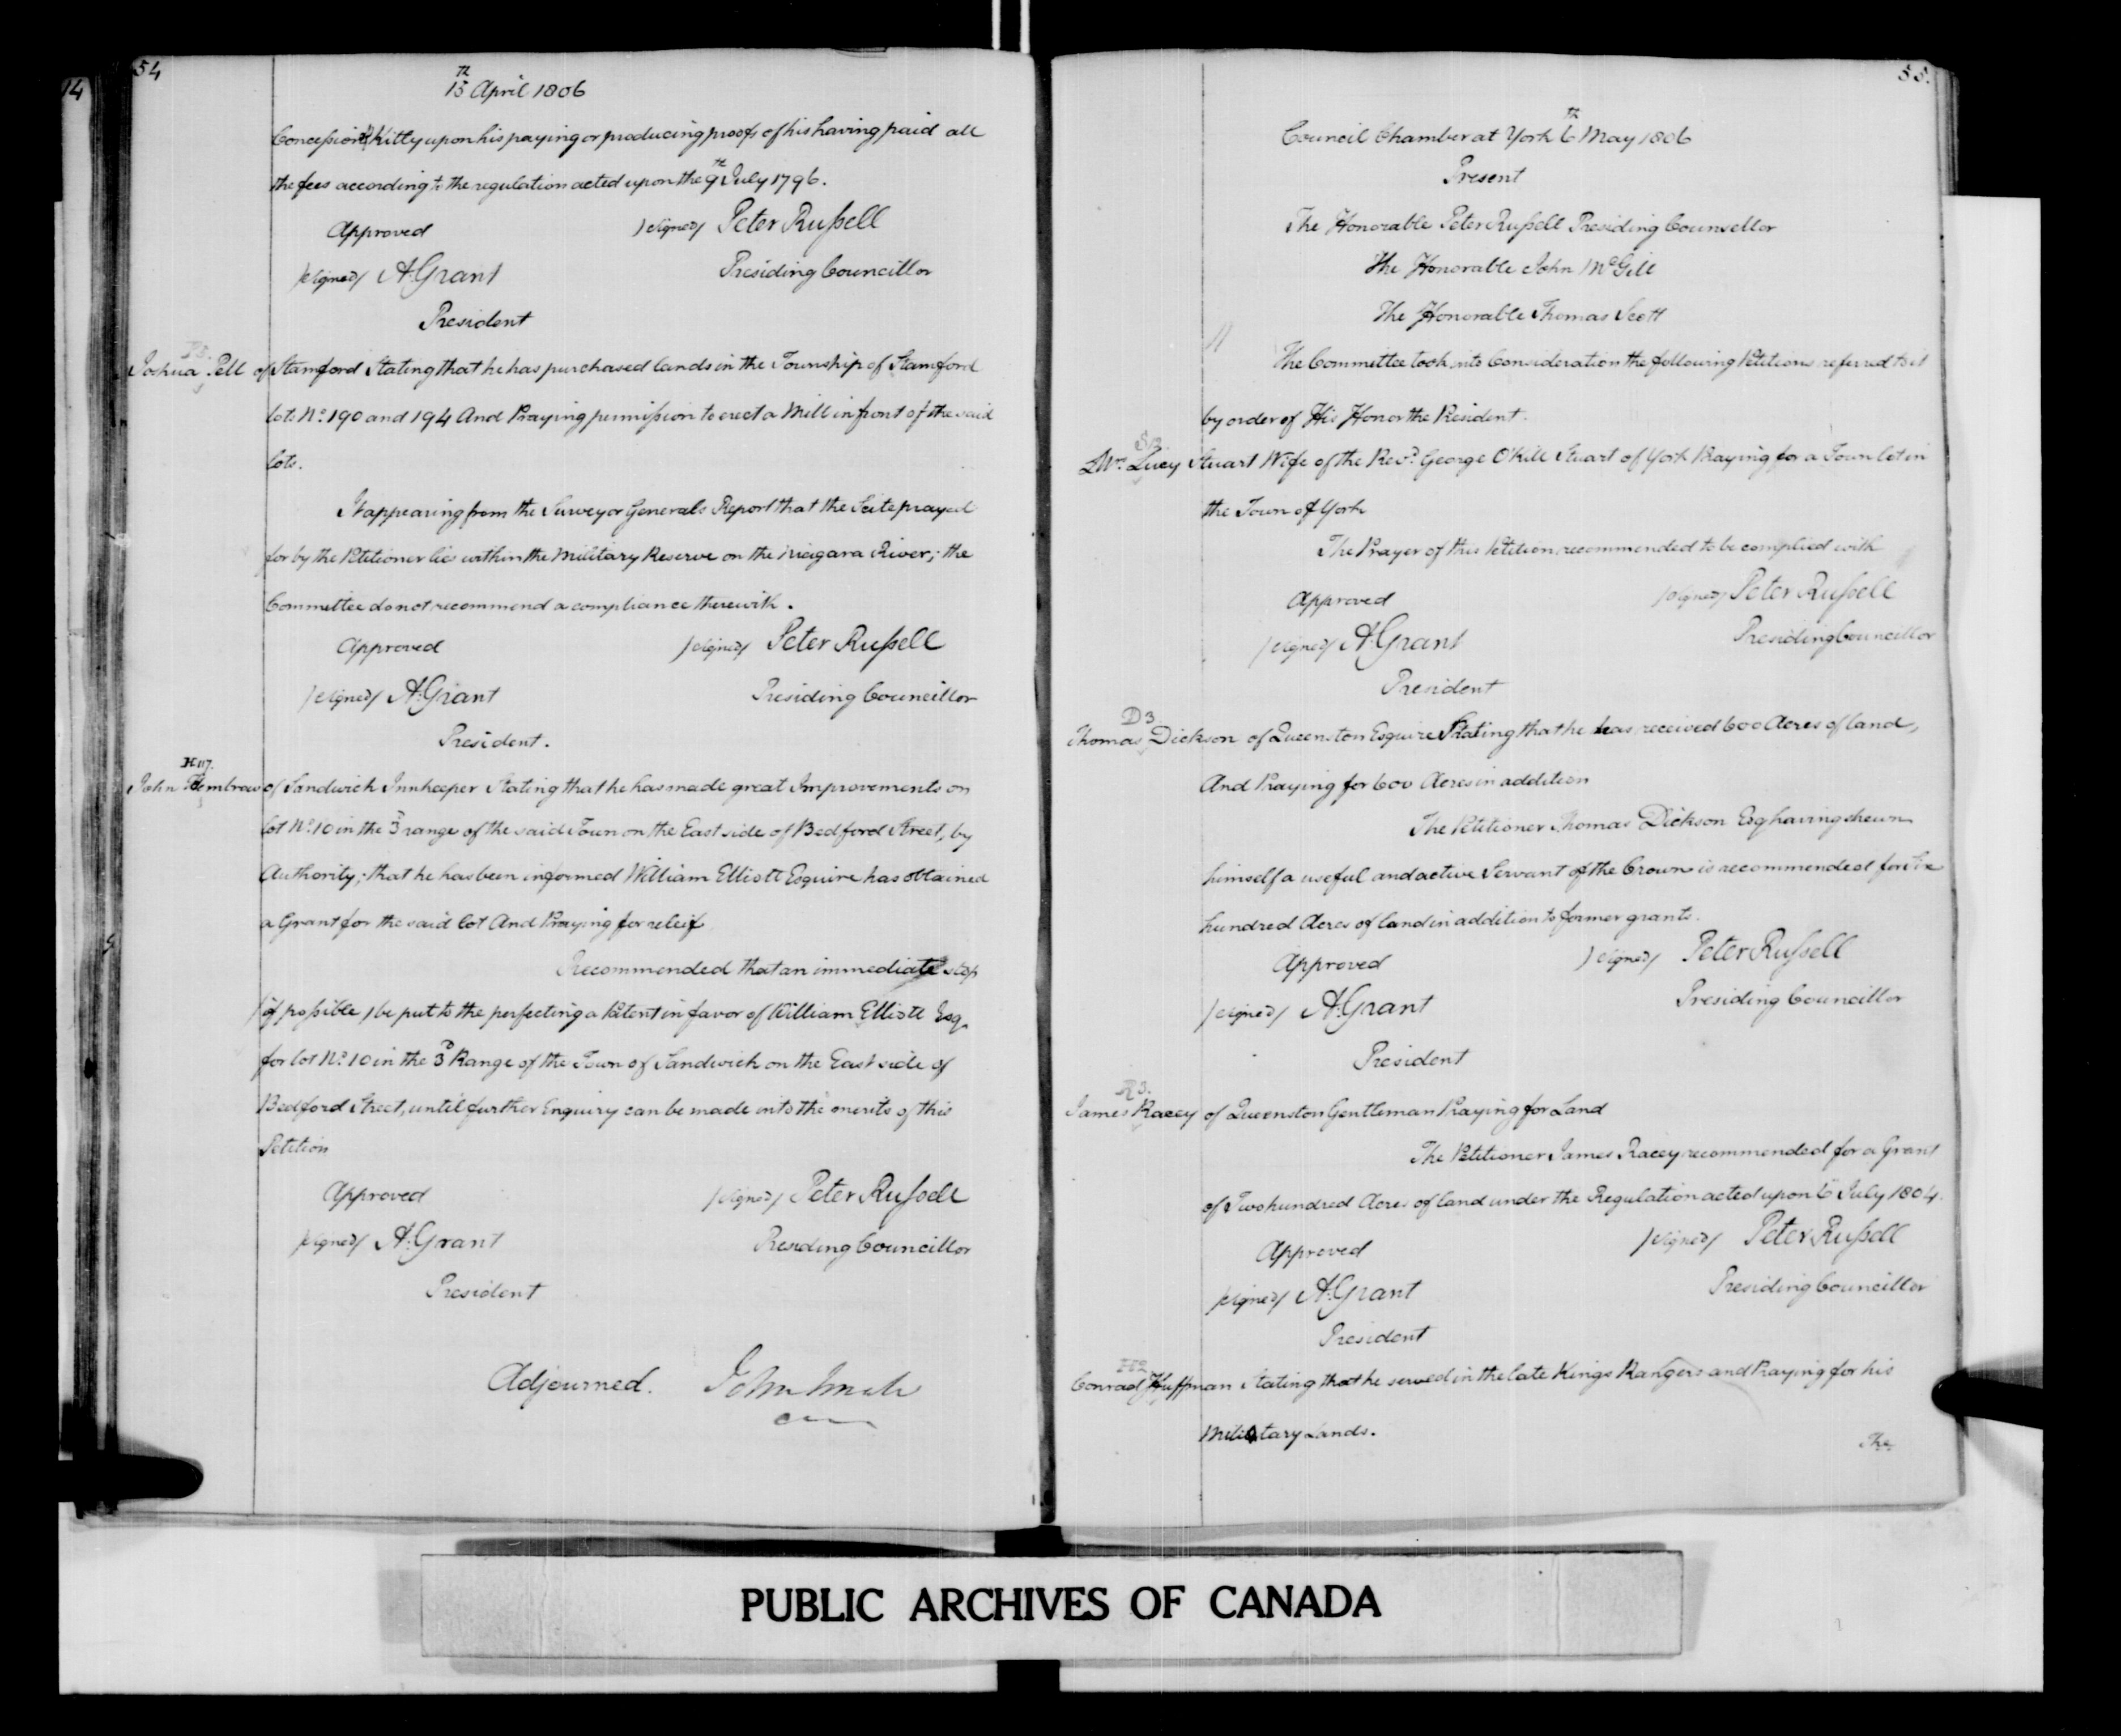 54
15th April 1806
Concession of Kitly upon his paying or producing proofs of his having paid all
the fees according to the regulation acted upon the 9th July 1796.
Approved
/signed/ Peter Russell
Presiding Councillor
/signed/ A. Grant
President
P3.
Joshua Pell of Stamford Stating that he has purchased lands in the Township of Stamford
lots No. 190 and 194 And Praying permission to erect a Mill in front of the said
lots.
It appearing from the Surveyor Generals Report that the Scite prayed
for by the Petitioner lies within the Military Reserve on the Niagara River; the
Committee do not recommend a compliance therewith.
Approved
/signed/ Peter Russell
/signed/ A. Grant
Presiding Councillor
President.
H117.
John Hembrow of Sandwich Innkeeper Stating that he has made great Improvements on
lot No. 10 in the 3d range of the said Town on the East side of Bedford Street, by
Authority; that he has been informed William Elliott Esquire has obtained
a Grant for the said lot And Praying for releif
Recommended that an immediate stop
/if possible/ be put to the perfecting a Patent in favor of William Elliott Esq.
for lot No. 10 in the 3d Range of the Town of Sandwich on the East side of
Bedford Street, until further Enquiry can be made into the merits of this
Petition
Approved
/signed/ Peter Russell
/signed/ A. Grant
Presiding Councillor
President
Adjourned. John Small
14
55.
Council Chamber at York 6th May 1806
Present
The Honorable Peter Russell Presiding Counsellor
The Honorable John McGill
The Honorable Thomas Scott
The Committee took into Consideration the following Petitions referred to it
by order of His Honor the President.
Mrs. Lucy Stuart Wife of the Revd. George O'Kill Stuart of York Praying for a Town lot in
the Town of York
The Prayer of this Petition recommended to be complied with
Approved
/signed/ Peter Russell
/signed/ A. Grant
Presiding Councillor
President
D3
Thomas Dickson of Queenston Esquire Stating that he has received 600 Acres of land,
And Praying for 600 Acres in addition
The Petitioner Thomas Dickson Esq having shewn
himself a useful and active Servant of the Crown is recommended for Six
hundred Acres of land in addition to former grants.
Approved
/signed/ Peter Russell
/signed/ A. Grant
Presiding Councillor
President
R3.
James Racey of Queenston Gentleman Praying for Land
The Petitioner James Racey recommended for a Grant
of Two hundred Acres of land under the Regulation acted upon 6th July 1804.
Approved
/signed/ Peter Russell
/signed/ A. Grant
Presiding Councillor
President
H2
Conrad Huffman Stating that he served in the late Kings Rangers and Praying for his
Military Lands.
The
PUBLIC ARCHIVES OF CANADA